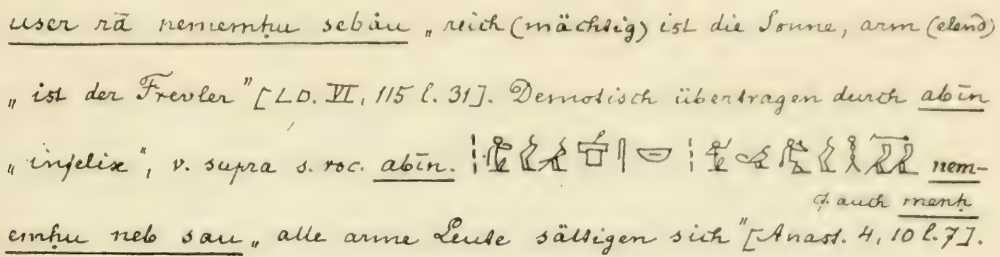 user rā nememḥu sebȧu „reich (mächtig) ist die Sonne, arm (elend)
„ist der Frevler" [LD. VI, 115 l. 31]. Demotisch übertragen durch abīn
„infelix", v. supra s. voc. abīn. nem-
cf. auch menḥ
emḥu neb sau „alle arme Leute sättigen sich" [Anast. 4, 10 l. 7].